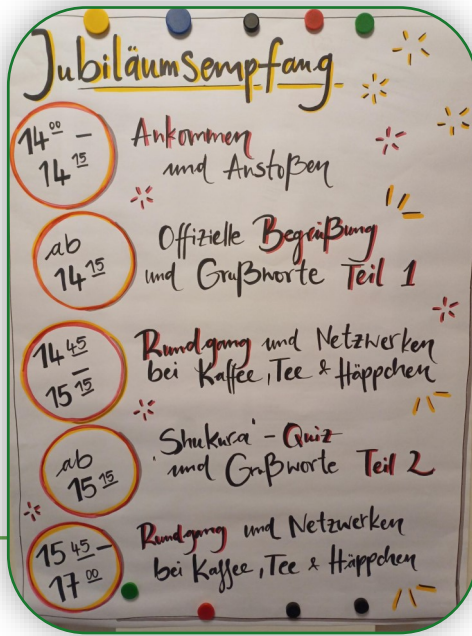 Jubiläumsempfang
14 00 –
14 15
Ankommen
und Anstoßen
ab
14 15
Offizielle Begrüßung
und Grußworte Teil 1
14 45
–
15 15
Rundgang und Netzwerken
bei Kaffee, Tee & Häppchen
ab
15 15
'Shukura' - Quiz
und Grußworte Teil 2
15 45 –
17 00
Rundgang und Netzwerken
bei Kaffee, Tee & Häppchen